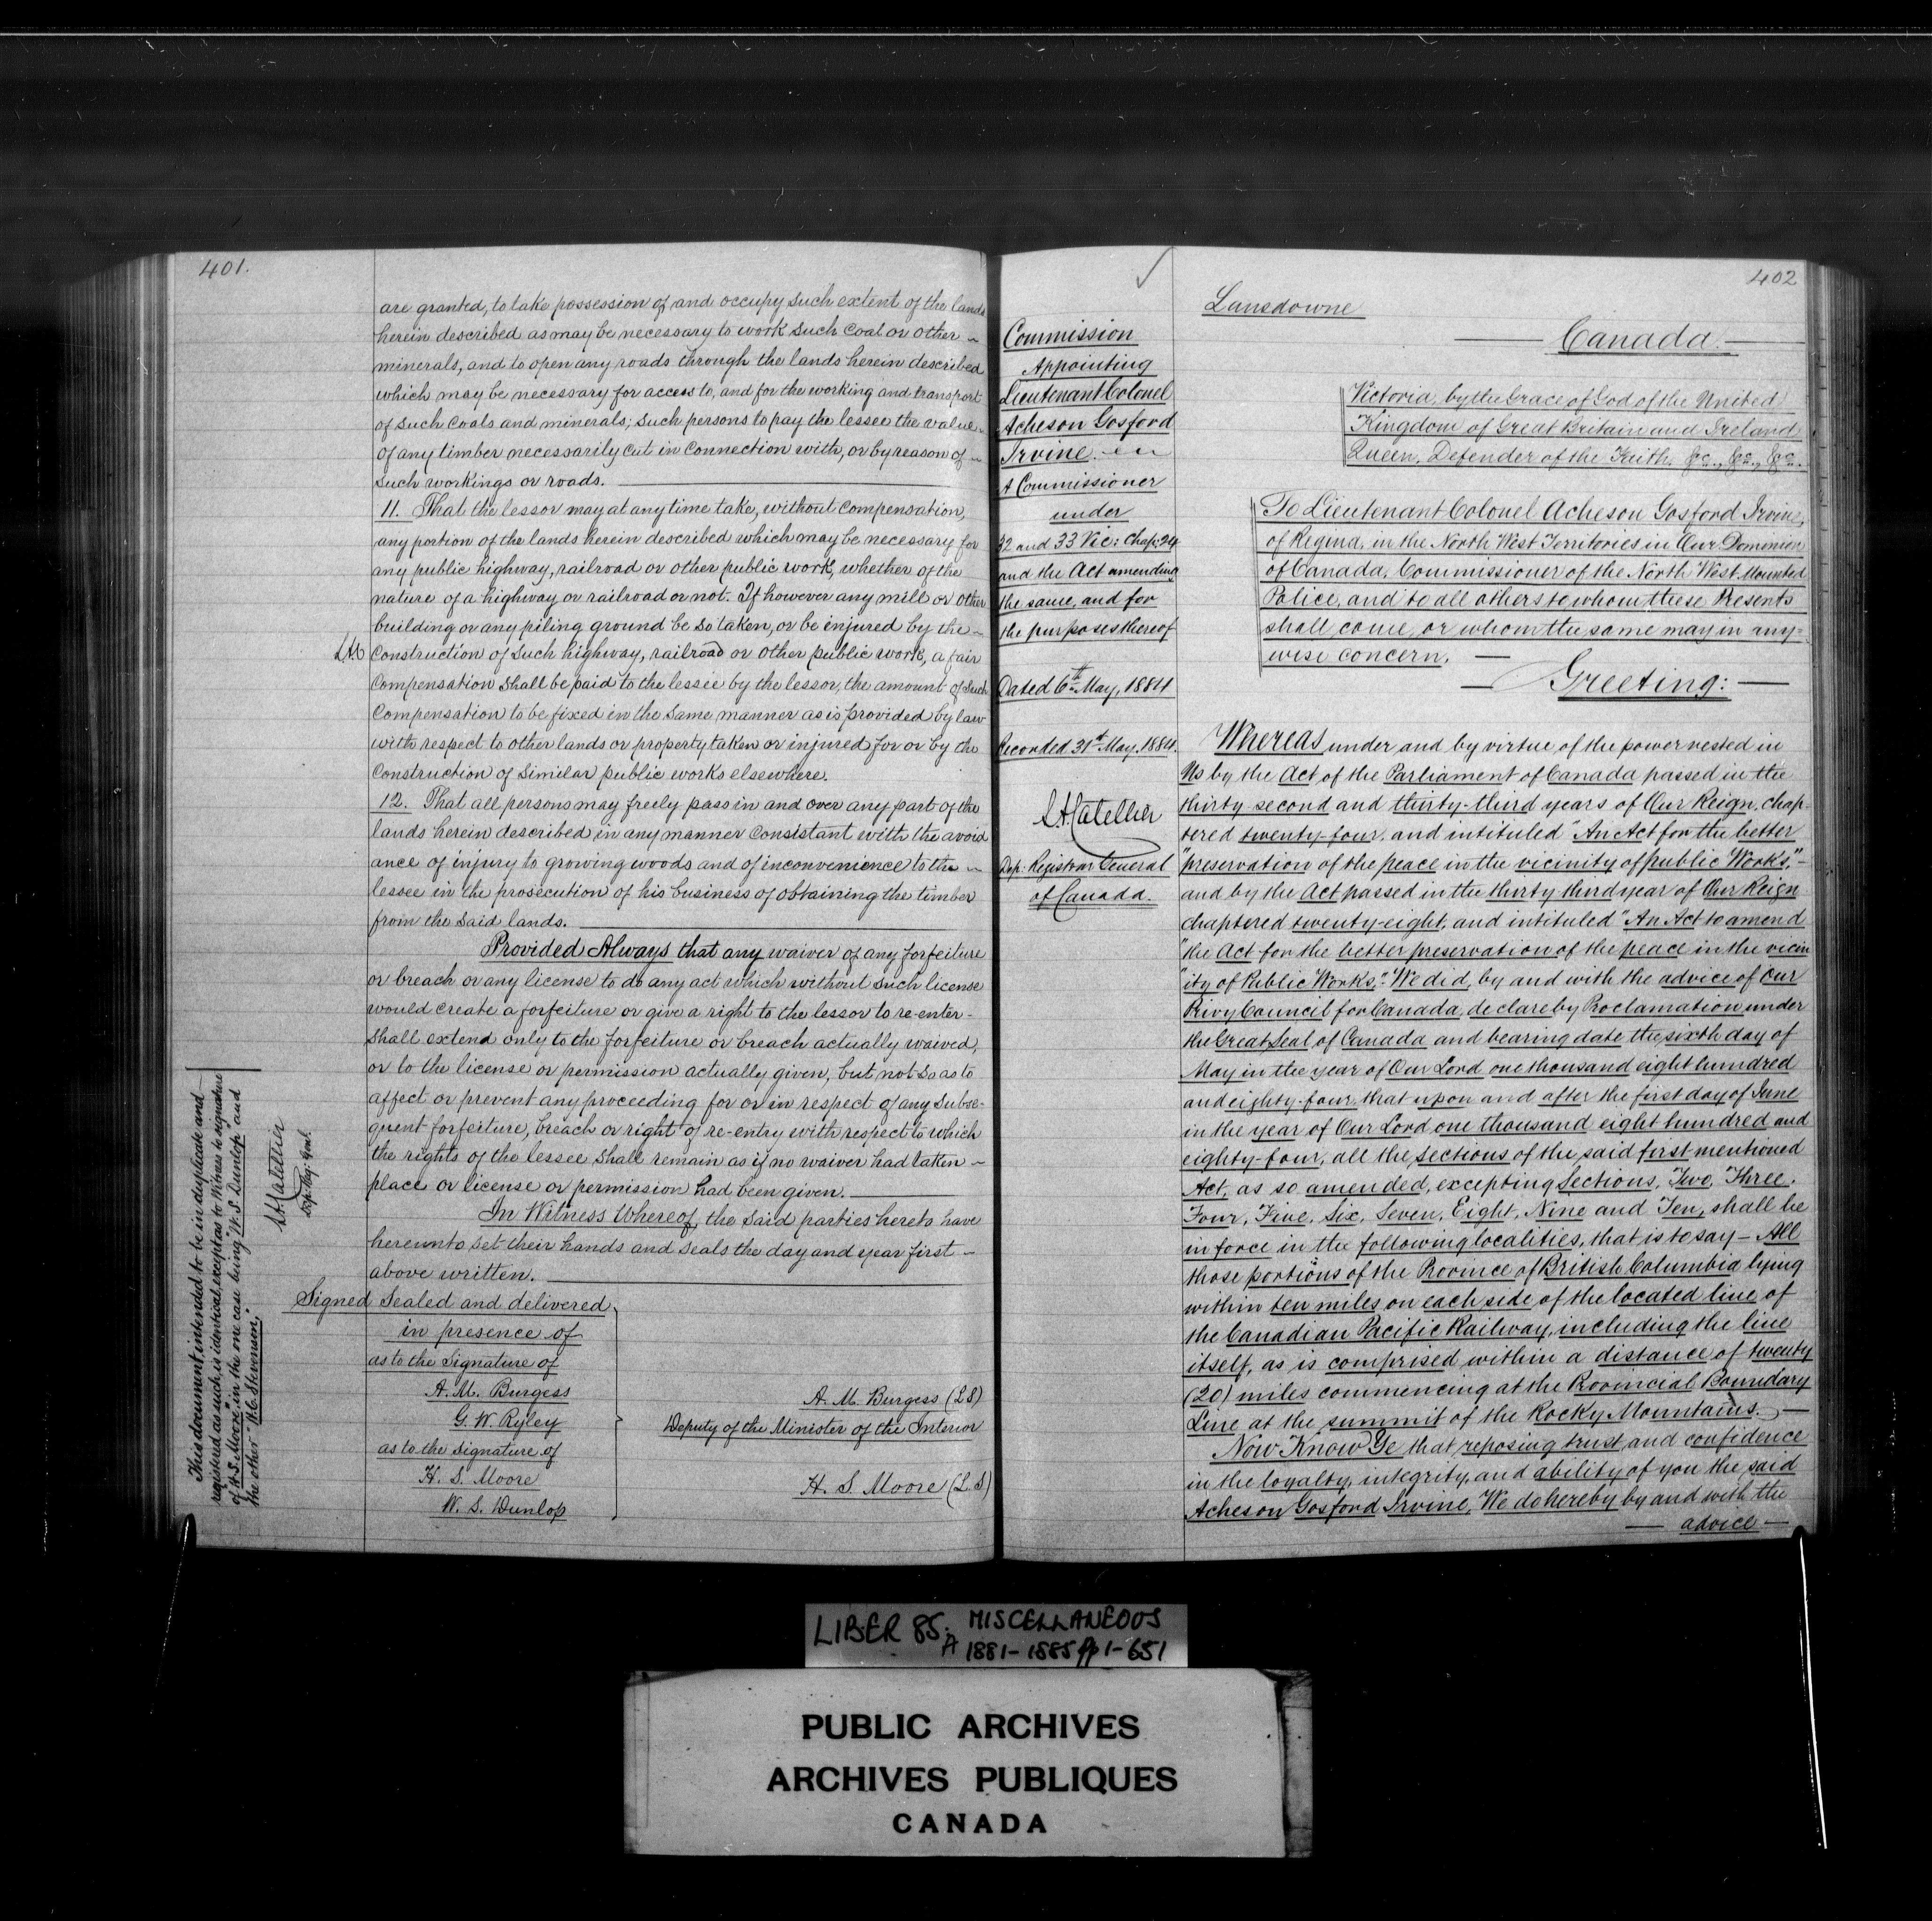 401.
are granted, to take possession of and occupy such extent of the lands
herein described as may be necessary to work such coal or other
minerals, and to open any roads through the lands herein described
which may be necessary for access to, and for the working and transport
of such coals and minerals; such persons to pay the lessee the value
of any timber necessarily cut in connection with, or by reason of
such workings or roads.
11. That the lessor may at any time take, without compensation,
any portion of the lands herein described which may be necessary for
any public highway, railroad or other public work, whether of the
nature of a highway or railroad or not. If however any mill or other
building or any piling ground be so taken, or be injured by the
construction of such highway, railroad or other public work, a fair
compensation shall be paid to the lessee by the lessor, the amount of such
compensation to be fixed in the same manner as is provided by law
with respect to other lands or property taken or injured for or by the
construction of similar public works elsewhere.
12. That all persons may freely pass in and over any part of the
lands herein described in any manner consistant with the avoid
ance of injury to growing woods and of inconvenience to the
lessee in the prosecution of his business of obtaining the timber
from the said lands.
Provided Always that any waiver of any forfeiture
or breach or any license to do any act which without such license
would create a forfeiture or give a right to the lessor to re-enter-
shall extend only to the forfeiture or breach actually waived,
or to the license or permission actually given, but not so as to
affect or prevent any proceeding for or in respect of any subse-
quent forfeiture, breach or right of re-entry with respect to which
the rights of the lessee shall remain as if no waiver had taken
place or license or permission had been given.
In Witness Whereof, the said parties hereto have
hereunto set their hands and seals the day and year first
above written.
Signed Sealed and delivered
in presence of
as to the Signature of
A. M. Burgess
G. W. Ryley
as to the Signature of
H. S. Moore
W. S. Dunlop
A. M. Burgess (LS)
Deputy of the Minister of the Interior
H. S. Moore (L.S)
This document intended to be in duplicate and
registered as such, is identical except as to Witness to signature
of H. S. Moore, in the one case being "W. S. Dunlop and
the other "W. C. Stevenson."
L. A. Catellier
Dep. Reg. Genl.
402
Commission
Appointing
Lieutenant Colonel
Acheson Gosford
Irvine
A Commissioner
under
32 and 33 Vic: Chap: 24
and the Act amending
the same, and for
the purposes thereof
Dated 6th May, 1884
Recorded 31st May, 1884.
L. A. Catellier
Dep: Registrar General
of Canada.
Lansdowne
Canada.
Victoria, by the Grace of God of the United
Kingdom of Great Britain and Ireland
Queen, Defender of the Faith, &c., &c., &c.
To Lieutenant Colonel Acheson Gosford Irvine,
of Regina, in the North West Territories in Our Dominion
of Canada, Commissioner of the North West Mounted
Police, and to all others to whom these Presents
shall come, or whom the same may in any-
wise concern,
Greeting:
Whereas under and by virtue of the power vested in
Us by the Act of the Parliament of Canada passed in the
thirty-second and thirty-third years of Our Reign, chap-
tered twenty-four, and intituled "An Act for the better
"preservation of the peace in the vicinity of public Works,"
and by the Act passed in the thirty third year of Our Reign
chaptered twenty-eight, and intituled "An Act to amend
"the Act for the better preservation of the peace in the vicin
"ity of Public Works," We did, by and with the advice of Our
Privy Council for Canada, declare by Proclamation under
the Great Seal of Canada and bearing date the sixth day of
May in the year of Our Lord one thousand eight hundred
and eighty-four, that upon and after the first day of June
in the year of Our Lord one thousand eight hundred and
eighty-four, all the sections of the said first mentioned
Act, as so amended, excepting Sections, Two, Three,
Four, Five, Six, Seven, Eight, Nine and Ten, shall be
in force in the following localities, that is to say – All
those portions of the Province of British Columbia lying
within ten miles on each side of the located line of
the Canadian Pacific Railway, including the line
itself, as is comprised within a distance of twenty
(20) miles commencing at the Provincial Boundary
Line at the summit of the Rocky Mountains.
Now Know Ye that reposing trust and confidence
in the loyalty, integrity, and ability of you the said
Acheson Gosford Irvine, We do hereby by and with the
advice
LIBER 85. MISCELLANEOUS
A 1881-1885 pp 1-651
PUBLIC ARCHIVES
ARCHIVES PUBLIQUES
CANADA